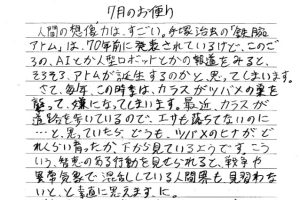 7月のお便り
人間の想像力は、すごい。手塚治虫の「鉄腕
アトム」は、70年前に発表されているけど、このご
ろの、AIとか人型ロボットとかの報道をみると、
そろそろ、アトムが誕生するのかと、思ってしまいます。
さて、毎年、この時季は、カラスがツバメの巣を
襲って、嫌になってしまいます。最近、カラスが
道路を歩いているので、エサも落ちてないのに
…と、思っていたら、どうも、ツバメのヒナが、ど
れくらい育ったか、下から見ているようです。こう
いう、智恵のある行動を見せられると、戦争や
異常気象で混乱している人間界も、見習わな
いと、と素直に思えます。に。